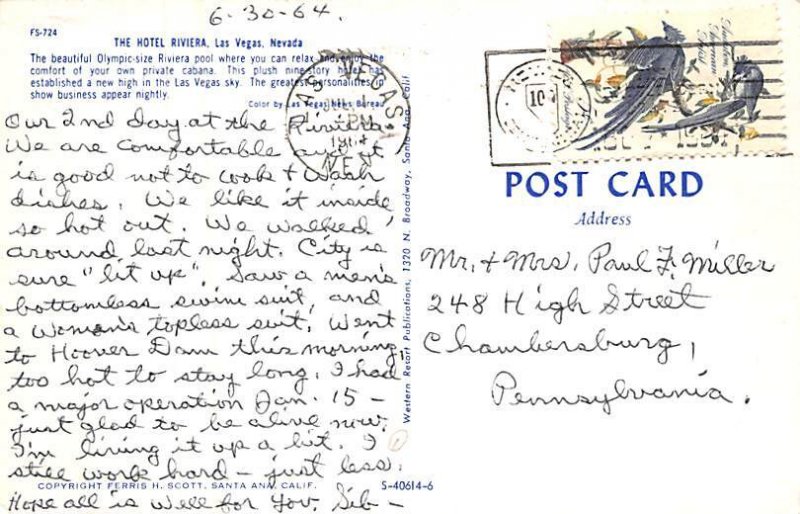 6-30-64.
FS-724
THE HOTEL RIVIERA, Las Vegas, Nevada
The beautiful Olympic-size Riviera pool where you can relax and enjoy the
comfort of your own private cabana. This plush nine-story hotel has
established a new high in the Las Vegas sky. The greatest personalities in
show business appear nightly.
Color by Las Vegas News Bureau
Our 2nd day at the Riviera.
We are comfortable and it
is good not to cook & wash
dishes. We like it inside
so hot out. We walked
around last night. City is
sure "lit up". Saw a men's
bottomless swim suit, and
a woman's topless suit. Went
to Hoover Dam this morning,
too hot to stay long. I had
a major operation Jan. 15 -
just glad to be alive now.
I'm living it up a bit. I
still work hard - just less.
Hope all is well for you. Sib -
COPYRIGHT FERRIS H. SCOTT, SANTA ANA, CALIF.
S-40614-6
Western Resort Publications, 1320 N. Broadway, Santa Ana, Calif
LAS VEGAS
PM
NEV
POST CARD
Address
Mr. & Mrs. Paul F. Miller
248 High Street
Chambersburg,
Pennsylvania.